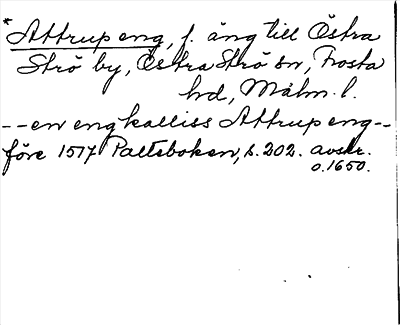 *Attrup eng, f. äng till Östra
Strö by, Östra Strö sn, Frosta
hd, Malm. l.
--en eng kalliss Attrup eng--
före 1517 Palteboken, s. 202. avskr.
o. 1650.